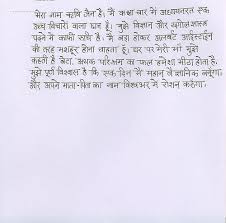 मेरा नाम ऋषि जैन है। मैं कक्षा चार में अध्ययनरत एक
कला छात्र हूँ। मुझे विज्ञान और खगोलशास्त्र
पढ़ने में काफी रूचि है। मैं बड़ा होकर अल्बर्ट आइंस्टीन
की तरह मशहूर होना चाहता हूँ। घर पर मेरी माँ मुझे
कहती है बेटा, अथक परिश्रम का फल हमेशा मीठा होता है।
मुझे पूर्ण विश्वास है कि एक दिन मैं महान वैज्ञानिक बनूंगा
और अपने माता-पिता का नाम विश्वभर में रोशन करूंगा।